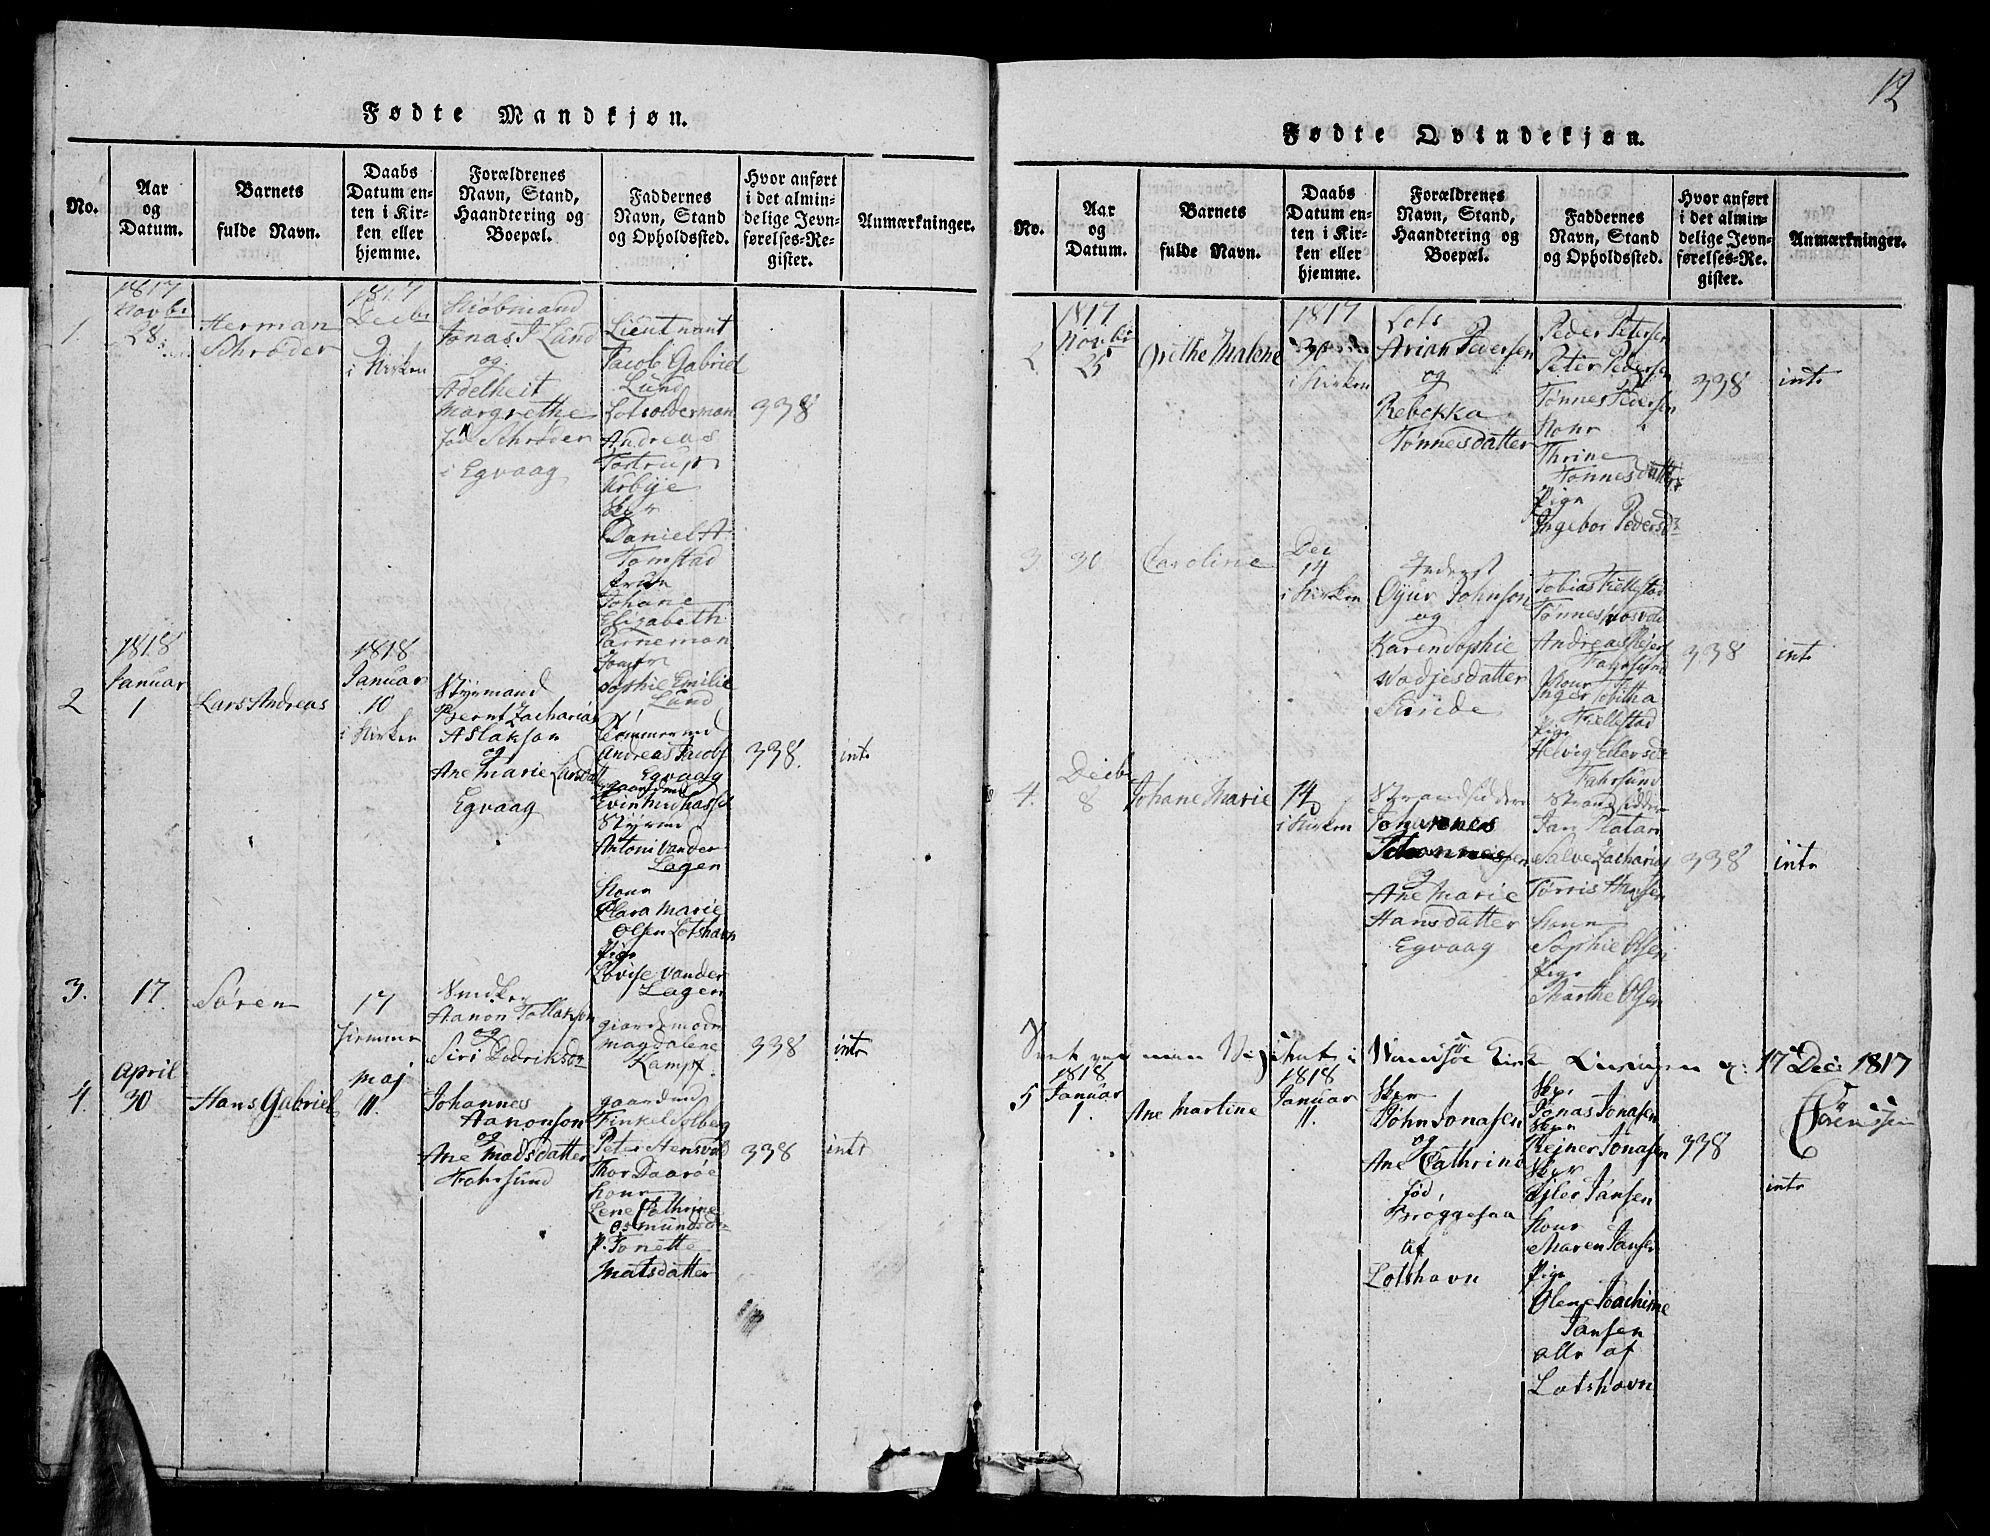 Fødte Mandkjøn.
No.
Aar
og
Datum.
Barnets
fulde Navn.
Daabs
Datum en-
ten i Kir-
ken eller
hjemme.
Forældrenes
Navn, Stand,
Haandtering og
Boepæl.
Faddernes
Navn, Stand
og Opholdssted.
Hvor anført
i det almin-
delige Jevn-
førelses-Re-
gister.
Anmærkninger.
1.
1817
Novbr
28
Herman
Schrøder
1817
Decbr
i Kirken
Kiøbmand
Jonas J Lund
og
Adelheit
Margrethe
fød Schrøder
i Egvaag
Lieutnant
Jacob Gabriel
Lund
Lotsolderman
Andreas
Tostrup
Urbye
Skpr
Daniel A
Tomstad
Frue
Johane
Elisabeth
Parneman
Jomfr
Sophie Emilie
Lund
338
2
1818
Januar
1
Lars Andreas
1818
Januar
10
i Kirken
Styrmand
Bernt Zacharias
Aslaksen
og
Ane Marie Larsdatt
Egvaag
Andreas Jacobs
Egvaag
gaardmd
Styrmd
Antoni Vander
Lagen
Kone
Clara Marie
Olsen Lotshavn
Pige
Lovise Vander
Lagen
338.
intr
3.
17.
Søren
17
hjemme
Smidker
Aanon Tollaksen
og
Siri Dedriksdr
giordemoder
Magdalene
Kampf.
338
intr
4.
April
30
Hans Gabriel
Maj
11.
Johannes
Aanonson
og
Ane Madsdatter
Fahrsund
gaardmd
Finkel Solberg
Peter Hensvold
Thor Daarøe
Kone
Lene Cathrine
Osmundsdr
P. Tonette
Matsdatter
338
intr
12
Fødte Qvindekjøn.
No.
Aar
og
Datum.
Barnets
fulde Navn.
Daabs
Datum en-
ten i Kir-
ken eller
hjemme.
Forældrenes
Navn, Stand,
Haandtering og
Boepæl.
Faddernes
Navn, Stand
og Opholdssted.
Hvor anført
i det almin-
delige Jevn-
førelses-Re-
gister.
Anmærkninger.
2
1817
Novbr
25
Grethe Malene
1817
30
i Kirken
Lots
Arian Pedersen
og
Rebekka
Tønnesdatter
Peder Petersen
Peter Pedersen
Tønnes Pedersen
Konr
Thrine
Tønnesdatter
Pige
Ingebor Pedersdr
338
intr
3
30
Caroline
Dec
14
i Kirken
Inderst
Øyur Johnson
og
Karen Sophie
Wadjesdatter
Tobias Tiellestad
Andreas
Fahrsund
Kone
Inger Tobitha
Tiellestad
Pige
Helvig Ellersdr
Fahrsund
338
intr
4.
Decbr
8
Johane Marie
14
i Kirken
Strandsidder
Johannes
Johannessen
og
Ane Marie
Hansdatter
Egvaag
Strandsidder
Jan Platan
Salve Zacharias
Tørris Hansen
Kone
Sophie Olsen
Pige
Marthe Olsen
338
intr
17 Dec: 1817
Sørenssen
5
1818
Januar
1.
Ane Martine
1818
Januar
11.
Skpr
John Jonasen
og
Ane Cathrine
fød
Brøggesaa
af
Lotshavn
Skpr
Jonas Jonasen
Skpr
Rejner Jonasen
Skpr
Ejler Jansen
Kone
Maren Jansen
Pige
Olene Joachime
Jansen
alle af
Lotshavn
338
intr